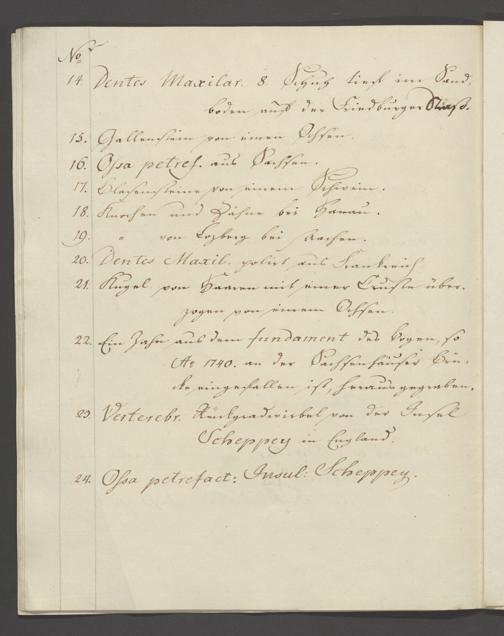 No.
14. Dentes Maxilar. 8. Schuh tief im Sand-
boden auf der Friedburger Straß.
15. Gallenstein von einem Ochsen.
16. Ossa petref. aus Sachsen.
17. Blasensteine von einem Schwein.
18. Knochen und Zähne bei Hanau.
19. " von Lozberg bei Aachen.
20. Dentes Maxil. polirt aus Frankreich
21. Kugel von Haaren mit einer Cruste über-
zogen von einem Ochsen.
22. Ein Zahn aus dem fundament des Bogen, so
Ao 1740. an der Sachsenhäuser Brü-
cke eingefallen ist, herausgegraben.
23. Verterebr. Rückgradwirbel von der Insel
Scheppey in England.
24. Ossa petrefact: Insul: Scheppey.